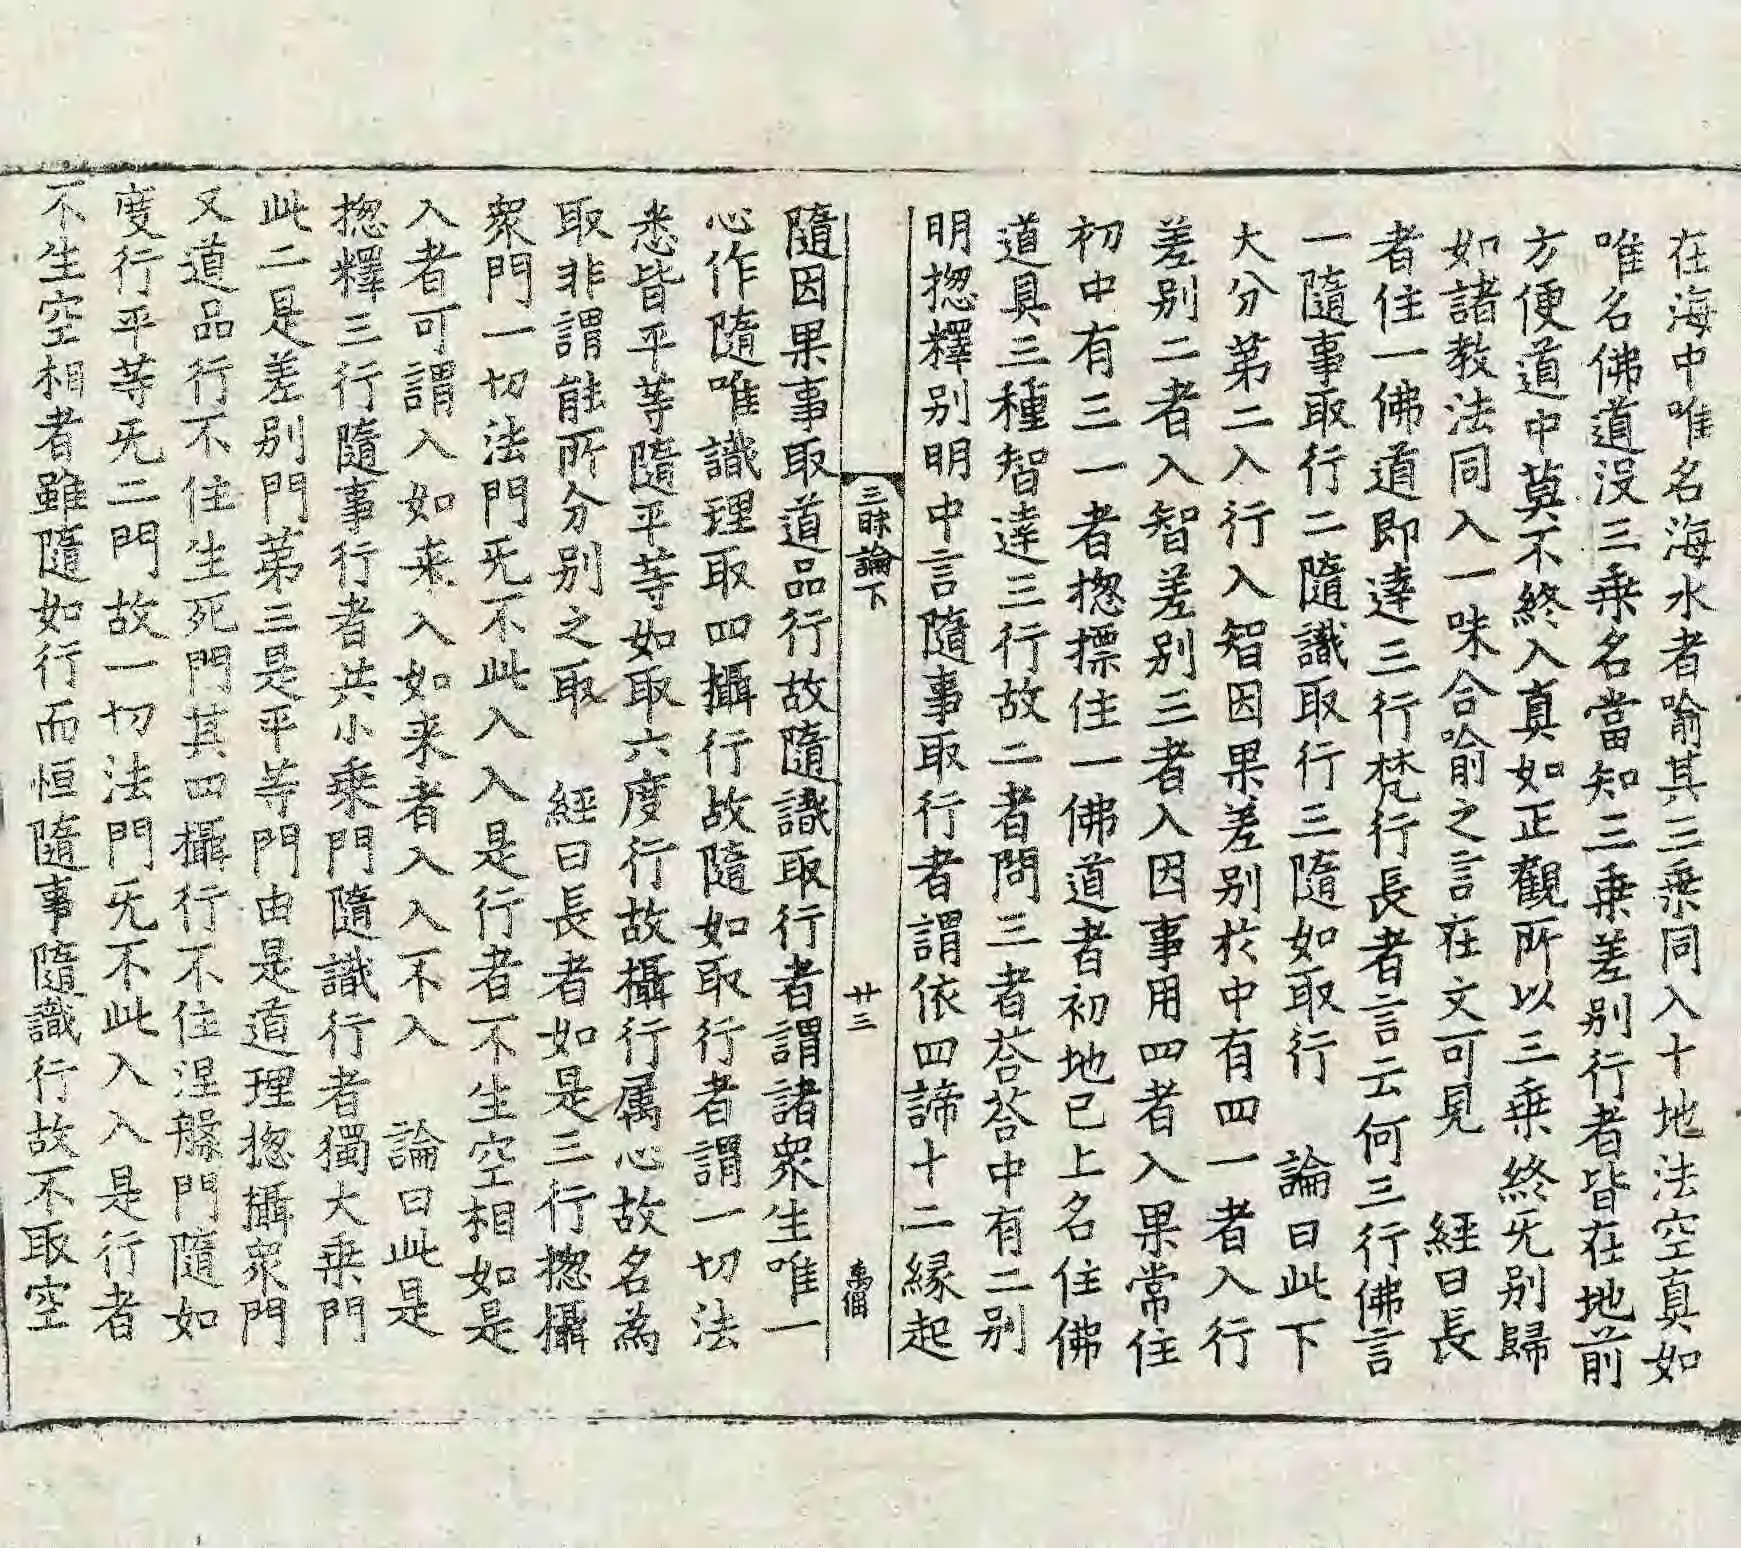 在海中唯名海水者喻其三乗同入十地法空真如
唯名佛道没三乗名當知三乗差别行者皆在地前
方便道中莫不終入真如正觀所以三乗終旡别歸
如諸教法同入一味合喻之言在文可見　經曰長
者住一佛道即達三行梵行長者言云何三行佛言
一隨事取行二隨識取行三隨如取行　論曰此下
大分第二入行入智因果差别於中有四一者入行
差别二者入智差别三者入因事用四者入果常住
初中有三一者揔摽住一佛道者初地已上名住佛
道具三種智達三行故二者問三者荅荅中有二别
明揔釋别明中言隨事取行者謂依四諦十二縁起
三昧論下　廿三　萬侶
隨因果事取道品行故隨識取行者謂諸衆生唯一
心作隨唯識理取四攝行故隨如取行者謂一切法
悉皆平等隨平等如取六度行故攝行属心故名為
取非謂能所分别之取　經曰長者如是三行揔攝
衆門一切法門旡不此入入是行者不生空相如是
入者可謂入如来入如来者入入不入　論曰此是
揔釋三行隨事行者共小乗門隨識行者獨大乗門
此二是差别門第三是平等門由是道理揔攝衆門
又道品行不住生死門其四攝行不住涅槃門隨如
度行平等旡二門故一切法門旡不此入入是行者
不生空相者雖隨如行而恒隨事隨識行故不取空